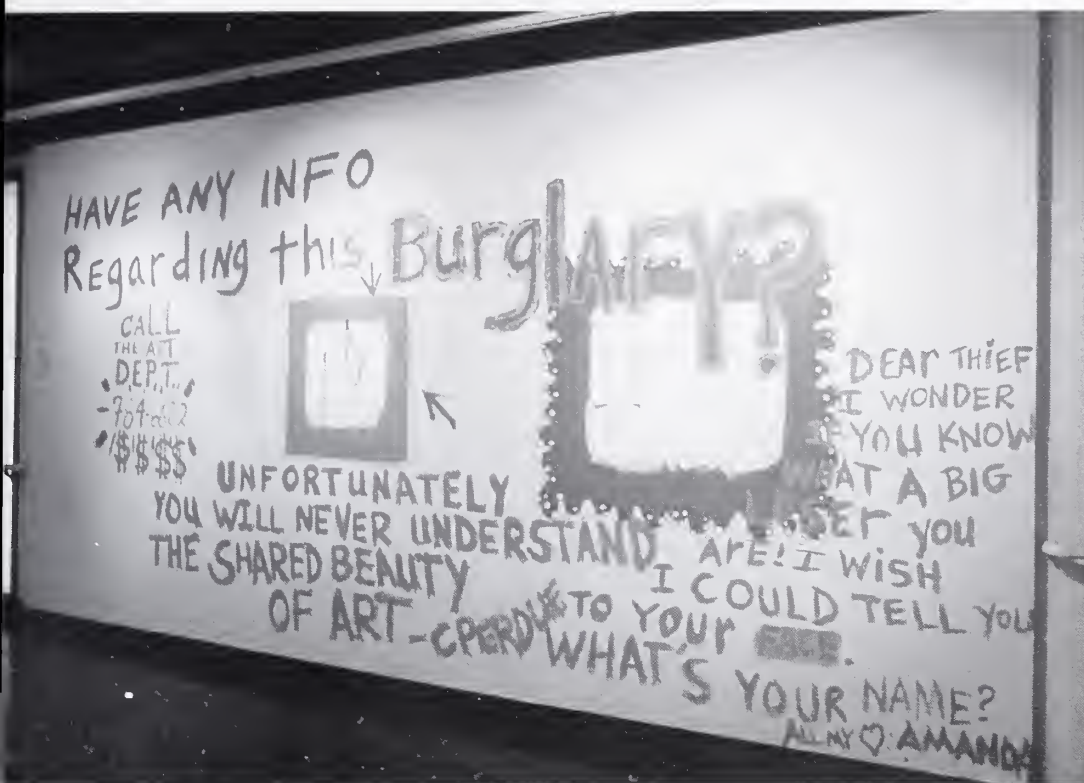 HAVE ANY INFO
Regarding this BurglArY?
CALL
THE ART
DEPT.
$$$$
UNFORTUNATELY
YOU WILL NEVER UNDERSTAND
THE SHARED BEAUTY
OF ART - CPERDUE
DEAr THiEF
I WONDER
IF YOU KNOW
WHAT A BIG
LOSEr YOU
ArE! I WiSH
I COULD TELL YOU
TO YOUr FACE.
WHAT'S YOUR NAME?
ALL MY ♡ AMANDA